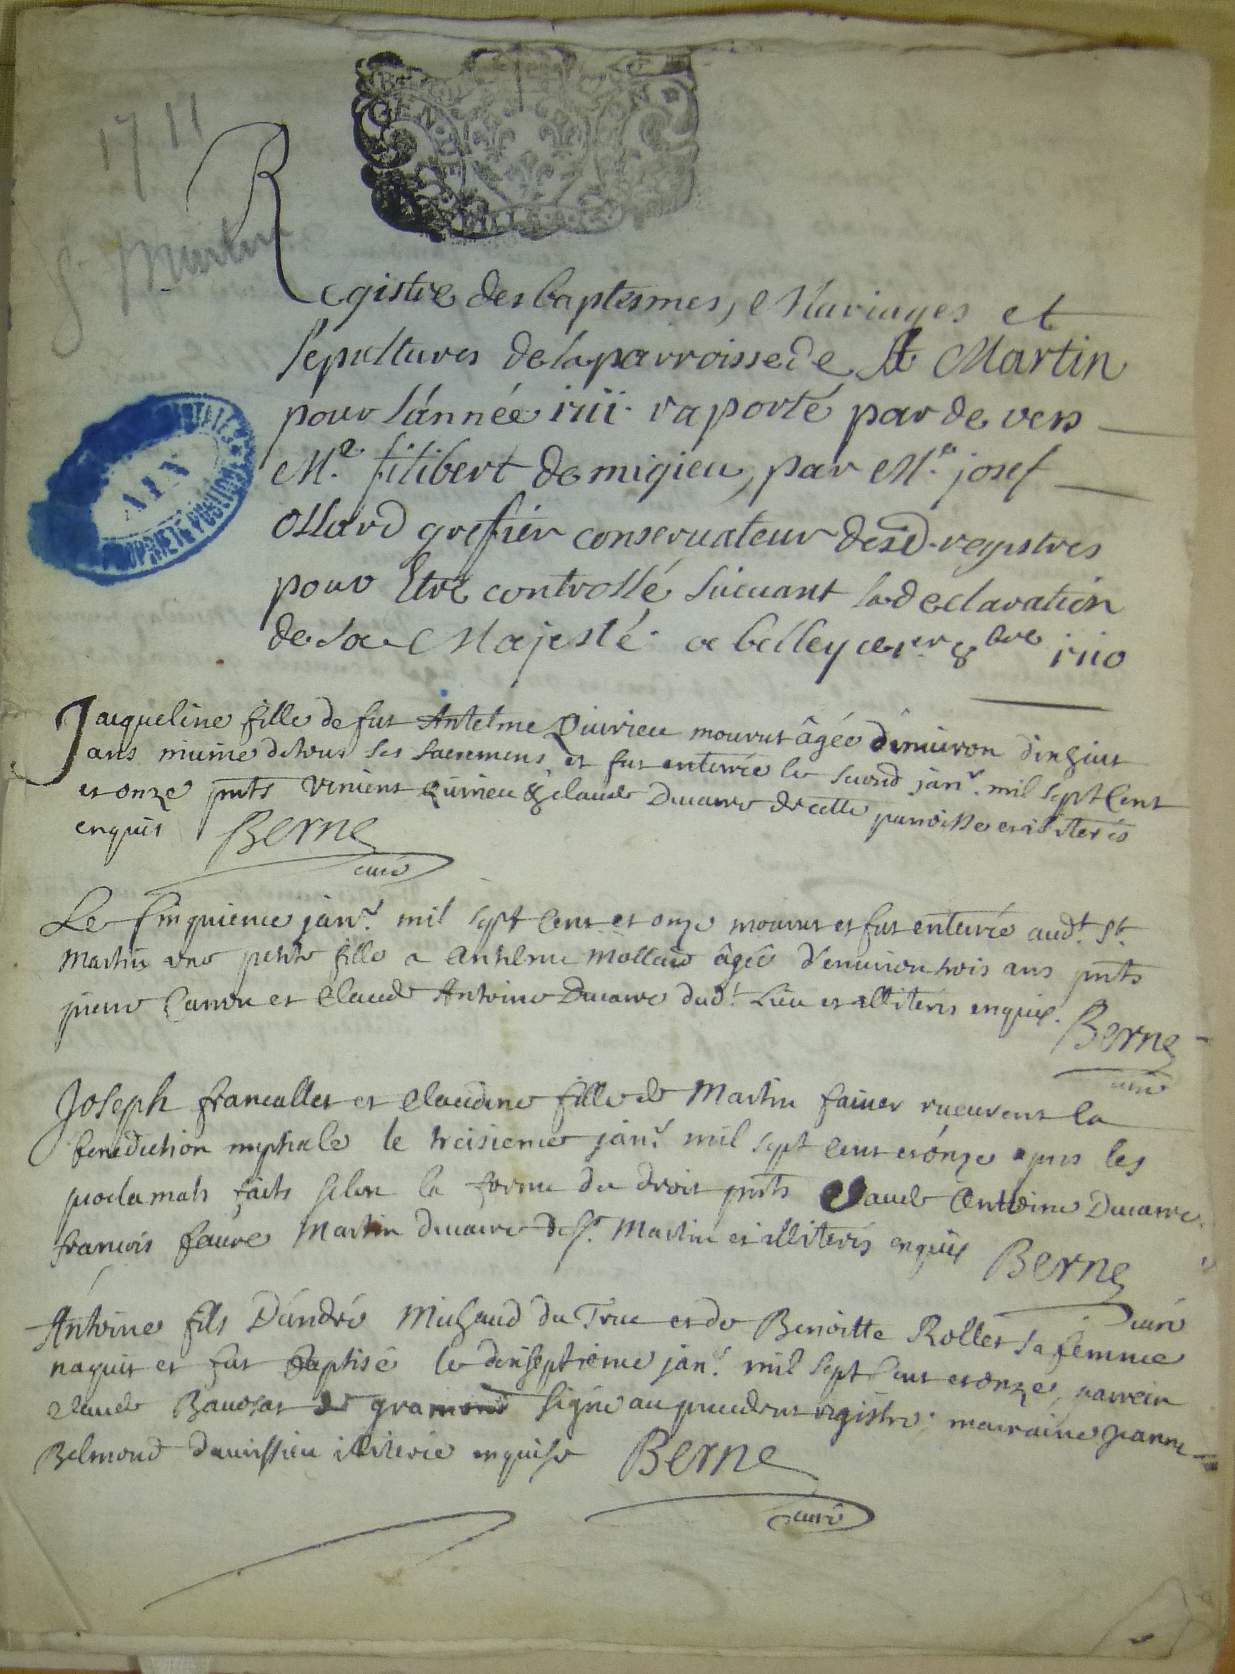 1711
St Martin
GEN
Registre des baptesmes, Mariages et
sepultures de la parroisse de St Martin
pour l'année 1711 raporté par de vers
Me. filibert de migieu, par Me. josef
ollard grefier conservateur desd. registres
pour Etre controllé suivant la declaration
de sa Majesté a belley ce 1er 8bre 1710
AIN
PROPRIETE PUBLIQUE
Jacqueline fille de fut Antelme Quirieu mourut âgée d'environ dixhuit
ans munie de tous ses sacremens et fut enterrée le second janr. mil sept cent
et onze pnts Quirieu & claude Ducarre de cette parroisse et illiterés
enquis Berne
curé
Le cinquieme janr. mil sept cent et onze mourut et fut enterrée audt. St.
Martin une petite fille a Antelme Mollard âgée d'environ trois ans pnts
pierre et Claude Antoine Ducarre dudt. Lieu et illiterés enquis. Berne
curé
Joseph francallet et Claudine fille de Martin receurent la
benediction nuptiale le treisieme janr. mil sept cent et onze apres les
proclamats faits selon la forme du droit pnts Claude Antoine Ducarre
francois faure Martin ducarre de St. Martin et illiterés enquis Berne
curé
Antoine fils D'andré Michaud du Truc et de Benoitte Rollet sa femme
naquit et fut Baptisé le dixseptieme janr. mil sept cent et onze, parrein
claude de gramond signé au precedent registre; marraine jeanne
Belmond illiterée enquise Berne
curé